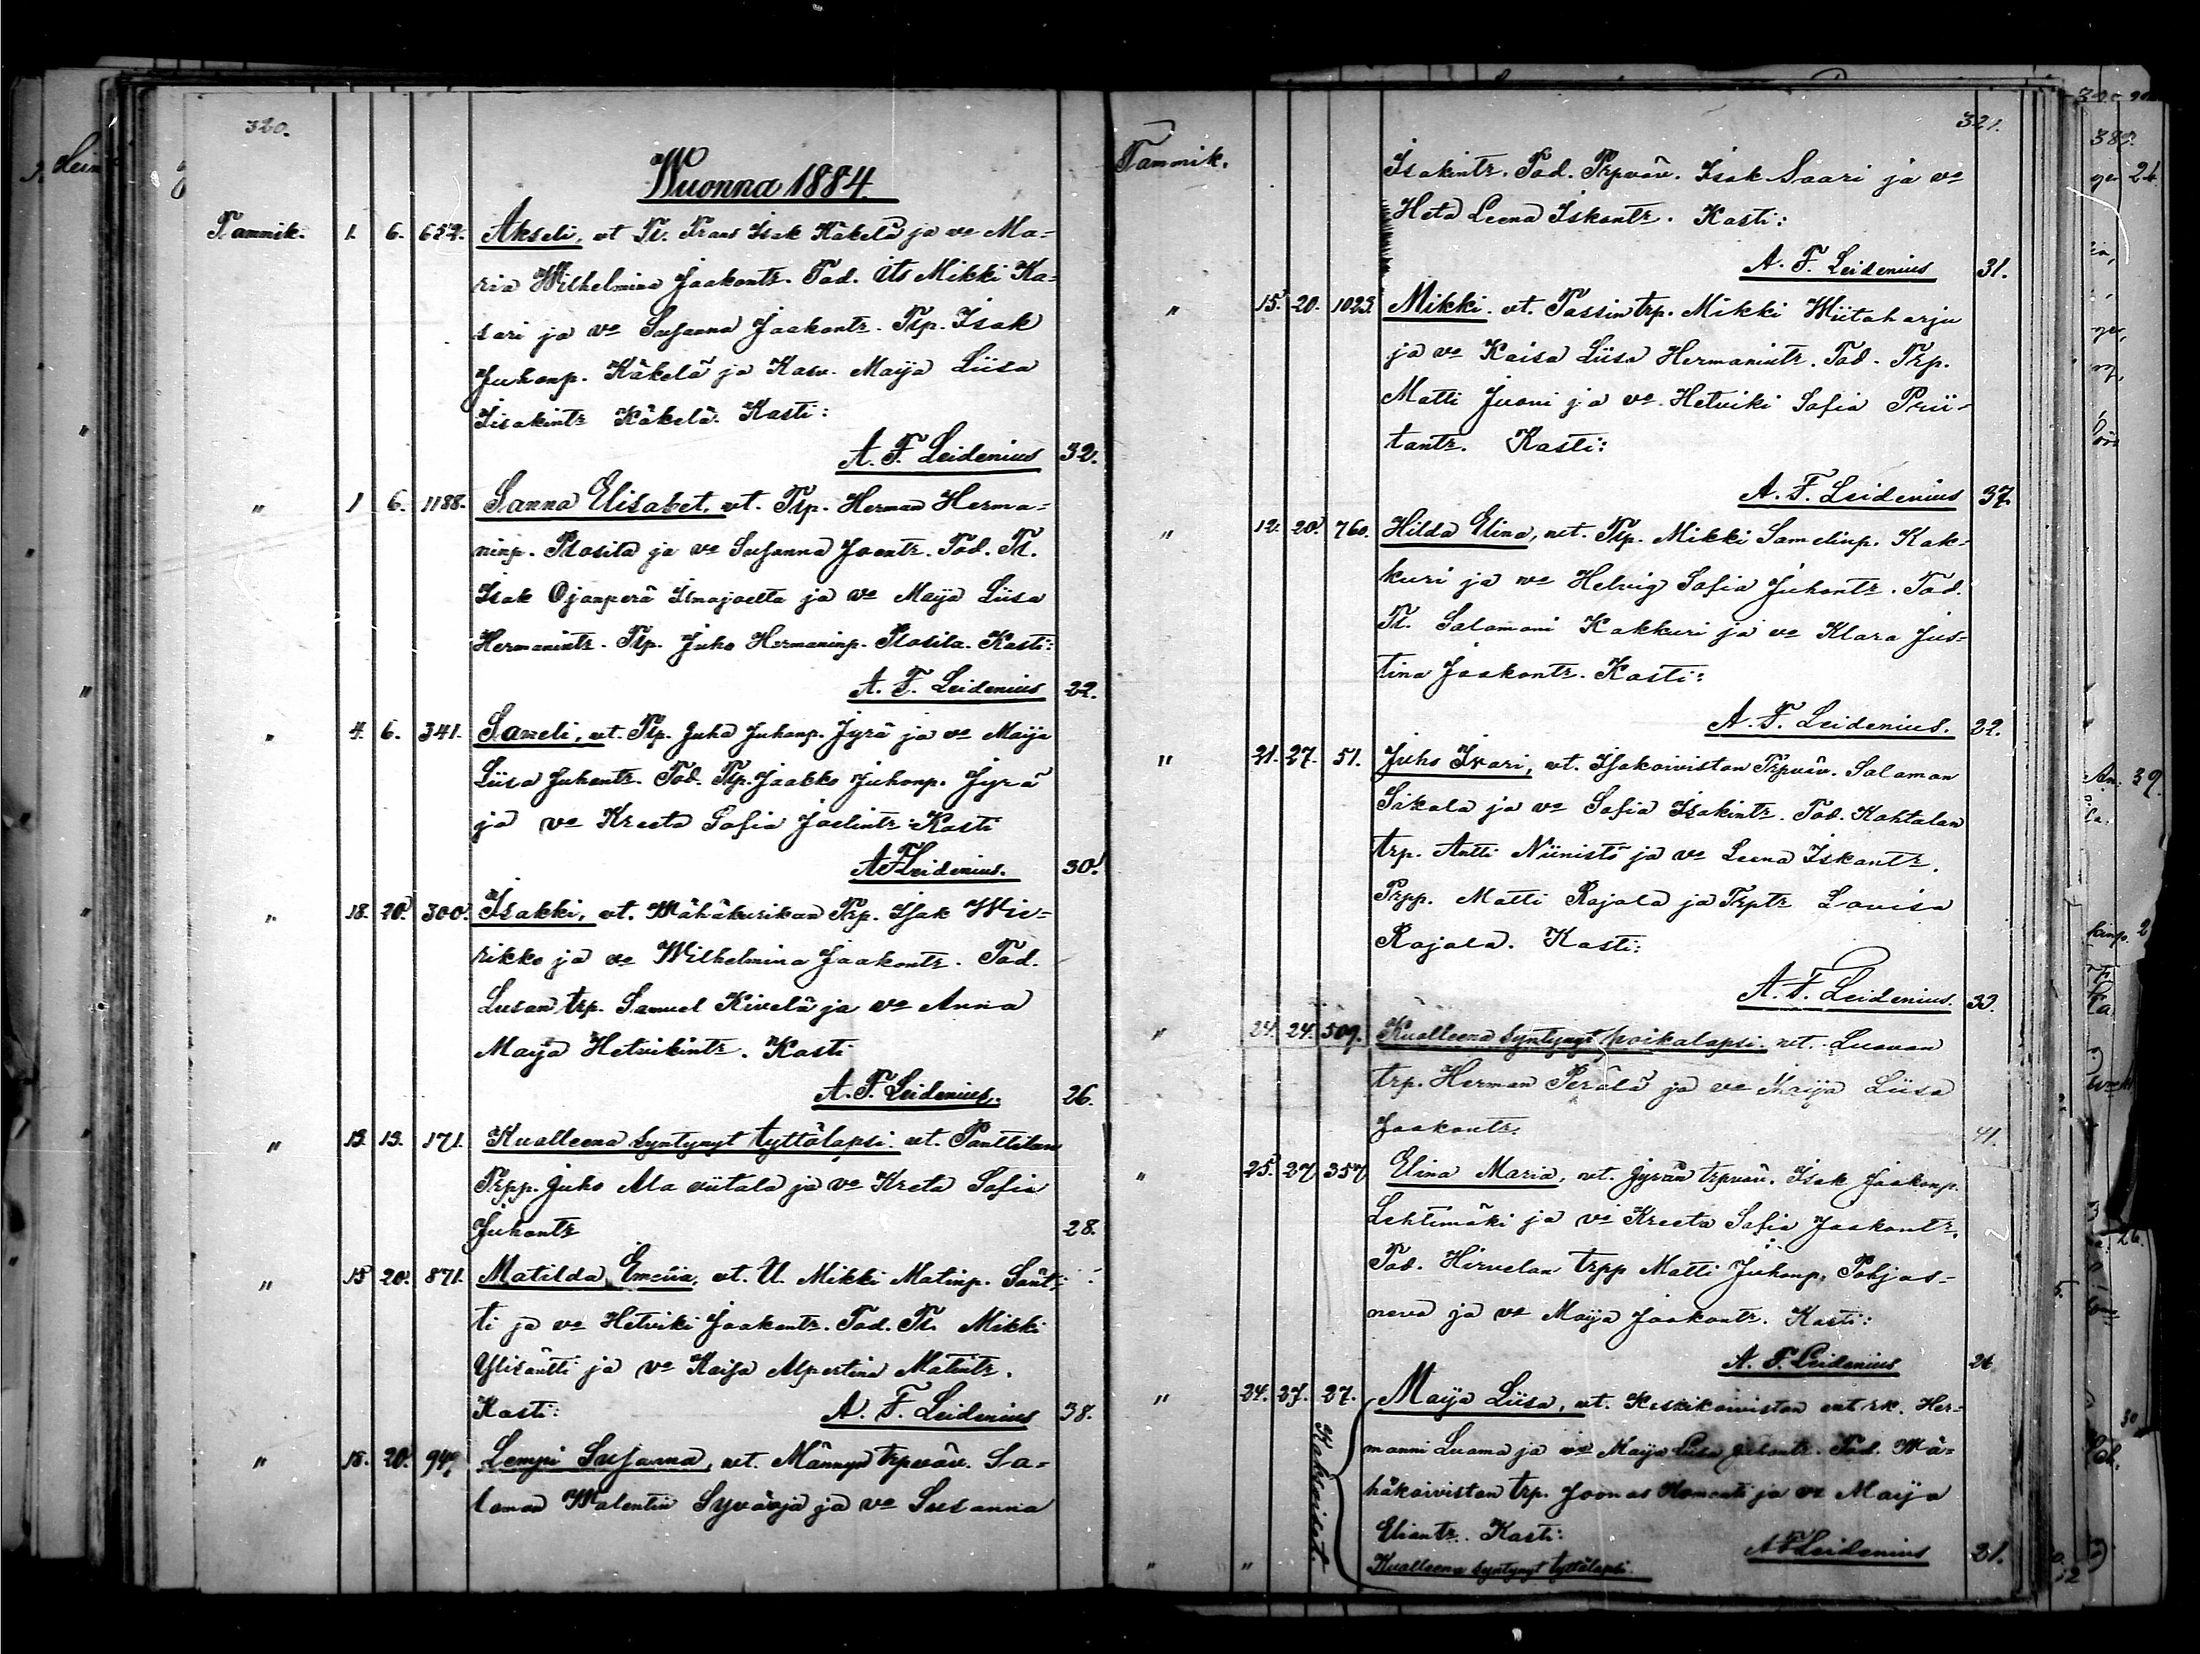 320.
Wuonna 1884.
Tammik. 1. 6. 652. Akseli, vt Tl. Frans Isak Käkelä ja vo Ma-
ria Wilhelmina Jaakontr. Tod. its Mikki Ka-
sari ja vo Susanna Jaakontr. Tlp. Isak
Juhonp. Käkelä ja Kasv. Maija Liisa
Iisakintr Käkelä. Kasti:
A. F. Leidenius 32.
" 1 6. 1188. Sanna Elisabet, vt. Tlp. Herman Herma-
ninp. Plosila ja vo Susanna Joentr. Tod. Tl.
Isak Ojanperä Ilmajoelta ja vo Maija Liisa
Hermanintr. Tlp. Juho Hermaninp. Plosila. Kasti:
A. F. Leidenius 22.
" 4. 6. 341. Saneli, vt. Tlp. Juha Juhonp. Jyrä ja vo Maija
Liisa Juhontr. Tod. Tlp. Jaakko Juhonp. Jyrä
ja vo Kreeta Sofia Joelintr: Kasti
A F Leidenius. 30.
" 18. 20. 300. Isakki, vt. Wähäkurikan Trp. Isak Wie-
rikko ja vo Wilhelmina Jaakontr. Tod.
Lusan trp. Samuel Kivelä ja vo Anna
Maija Hetvikintr. Kasti
A. F. Leidenius. 26.
" 13. 13. 171. Kuolleena syntynyt tyttölapsi. vt. Panttilan
Trpp. Juho Ala viitala ja vo Kreta Sofia
Juhontr 28.
" 15 20. 871. Matilda Emelia, vt. U. Mikki Matinp. Sänt-
ti ja vo Hetviki Jaakontr. Tod. Tl. Mikki
Ylisäntti ja vo Kaisa Alpertina Matintr.
Kasti: A. F. Leidenius 38.
" 18. 20. 949. Lempi Susanna, vt. Männyn trpväv. Sa-
lomon Walentin Syväoja ja vo Susanna
Tammik. 321.
Isakintr. Tod. Trpväv. Isak Saari ja vo
Heta Leena Iskontr. Kasti:
A. F. Leidenius 31.
" 15. 20. 1023. Mikki. vt. Tassin trp. Mikki Wiitaharju
ja vo Kaisa Liisa Hermanintr. Tod. Trp.
Matti Juoni ja vo Hetviki Sofia Prii-
tantr. Kasti:
A. F. Leidenius 37.
" 12. 20. 760. Hilda Elina, vt. Tlp. Mikki Samelinp. Kak-
kuri ja vo Helvig Sofia Juhontr. Tod.
Tl. Salomoni Kakkuri ja vo Klara Jus-
tina Jaakontr. Kasti:
A. F. Leidenius. 22.
" 21. 27. 51. Juho Ivari, vt. Isokoiviston Trpväv. Salomon
Sikala ja vo Sofia Isakintr. Tod. Kohtalan
trp. Antti Niinistö ja vo Leena Iskontr.
Trpp. Matti Rajala ja Trptr Lovisa
Rajala. Kasti:
A. F. Leidenius. 33.
" 24. 24. 509. Kuolleena syntynyt poikalapsi. vt. Luovan
trp. Herman Perälä ja vo Maija Liisa
Jaakontr. 41.
" 25. 27 357 Elina Maria, vt. Jyrän trpväv. Isak Jaakonp.
Lehtimäki ja vo Kreeta Sofia Jaakontr.
Tod. Hirvelan trpp Matti Juhonp. Pohjas-
neva ja vo Maija Jaakontr. Kasti:
A. F. Leidenius 26
" 24. 27. 27. Maija Liisa, vt. Keskikoiviston ent rk. Her-
manni Luoma ja vo Maija Liisa Juhontr. Tod. Wä-
häkoiviston trp. Joonas ja vo Maija
Eliantr. Kasti: A F Leidenius 21.
" " Kuolleena syntynyt tyttölapsi.
Kaksoiset.